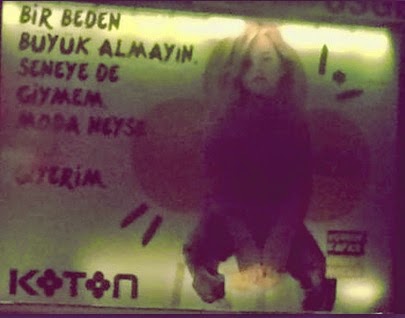 BIR BEDEN
BUYUK ALMAYIN.
SENEYE DE
GIYMEM
MODA NEYSE
GIYERIM
KOTON